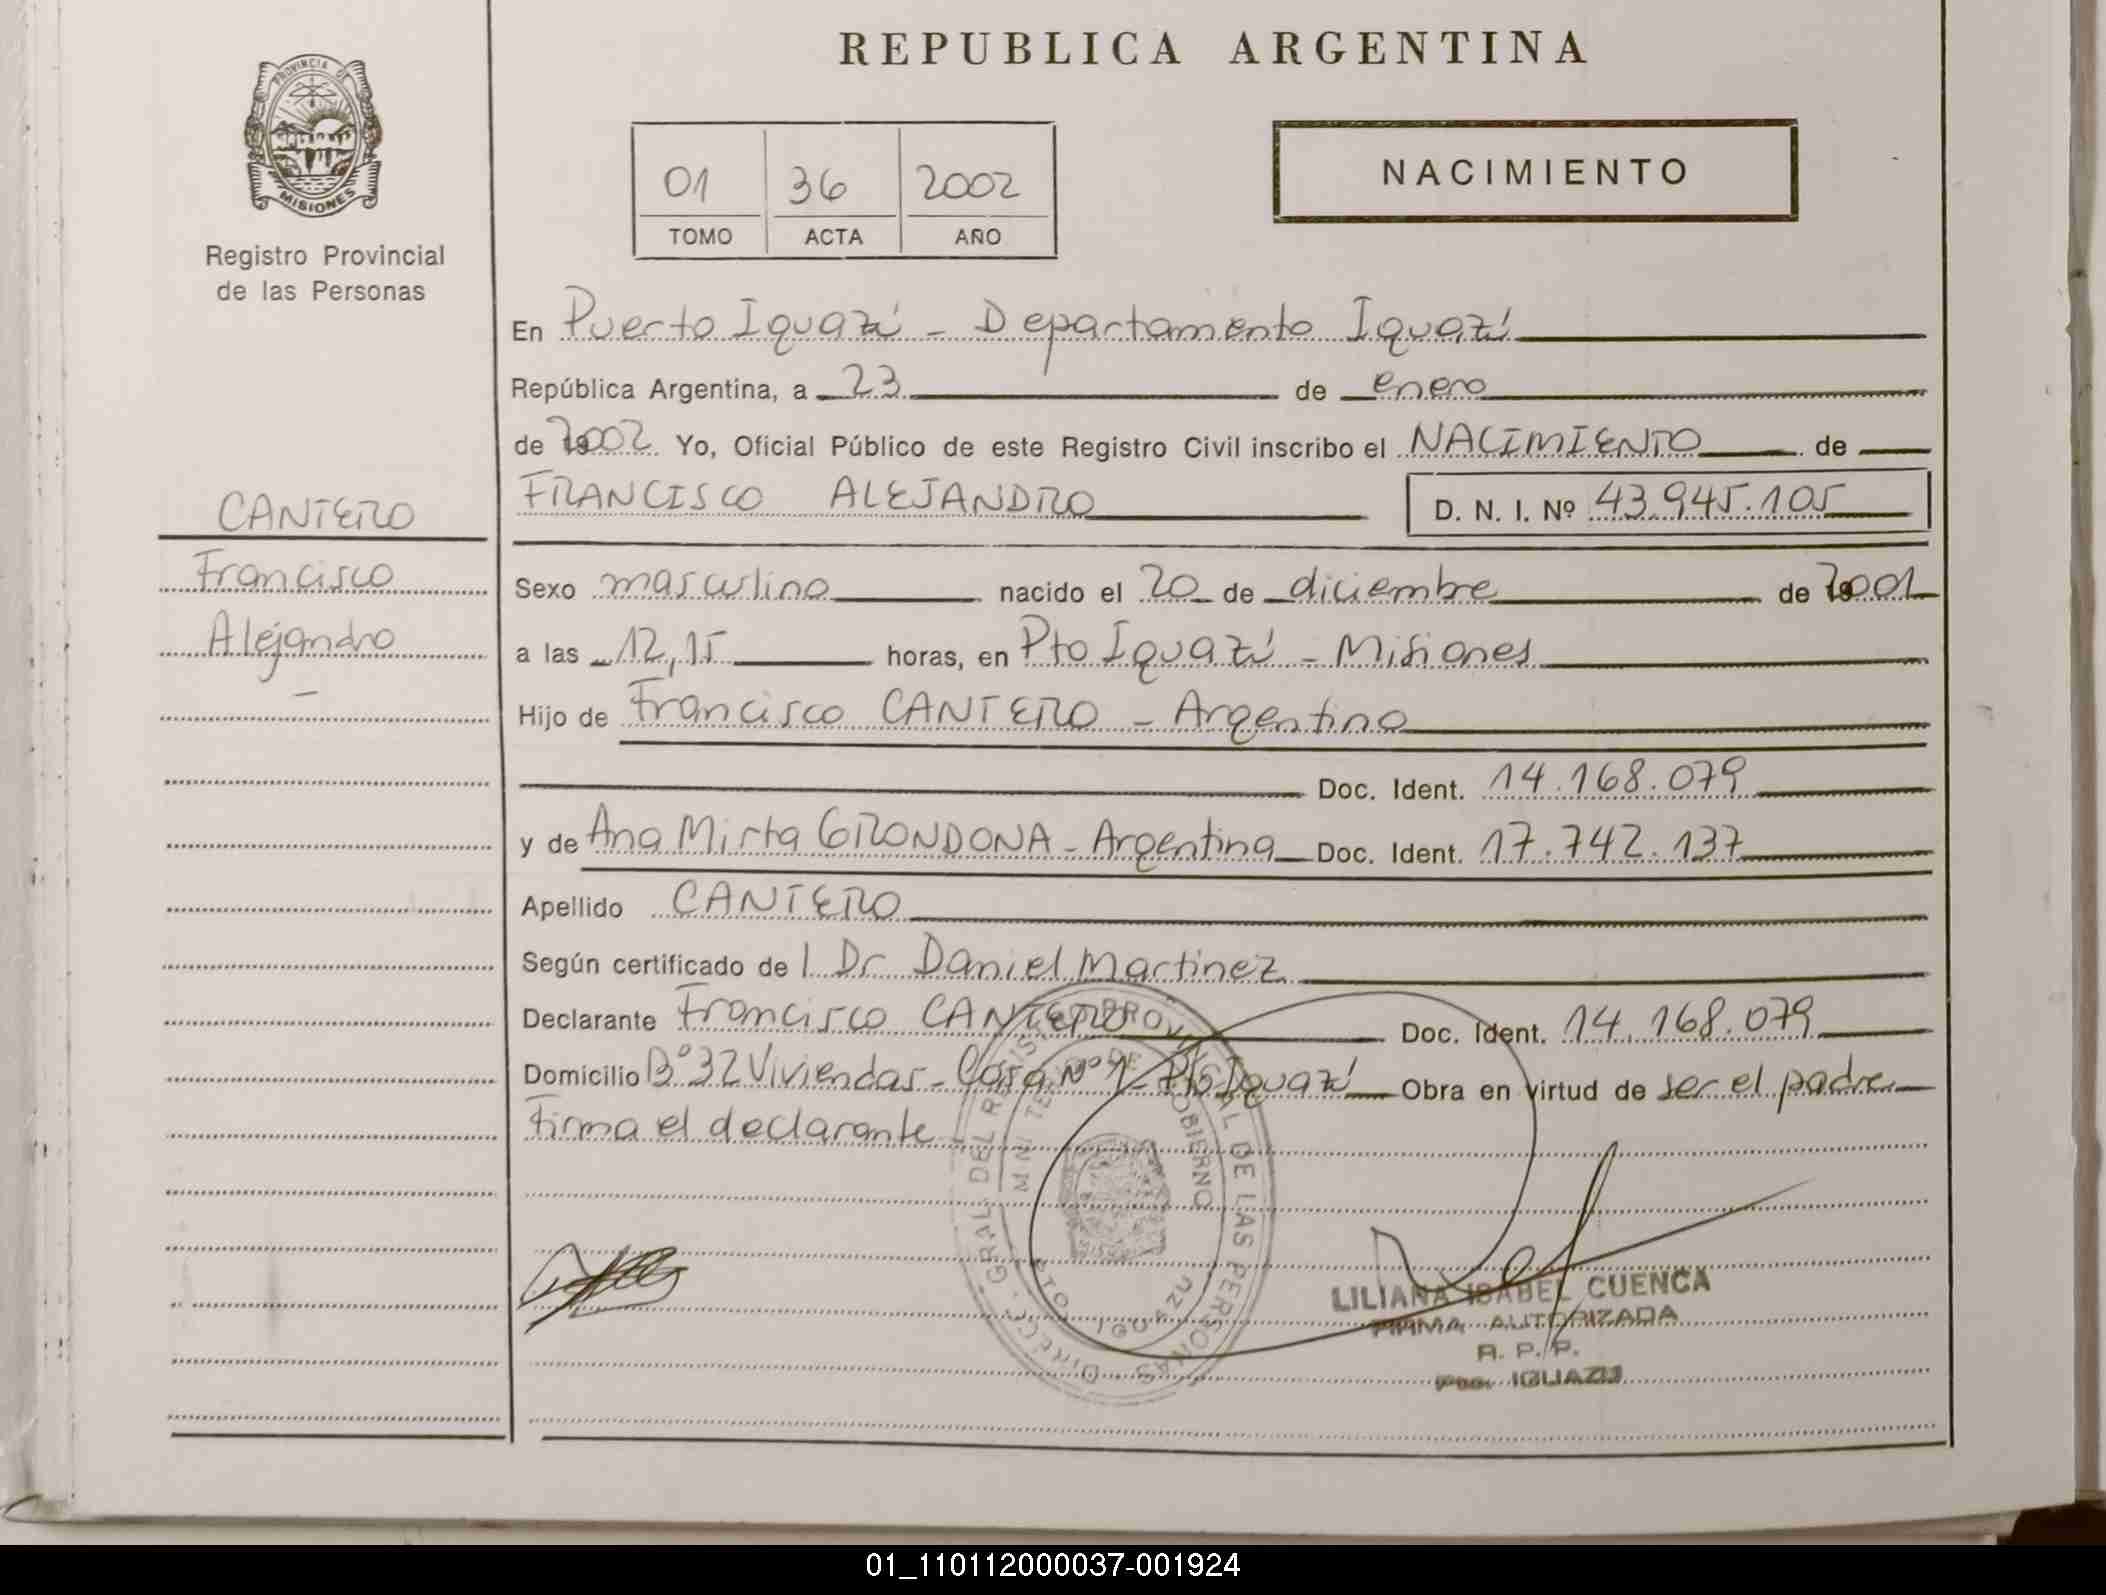 REPUBLICA ARGENTINA
PROVINCIA DE
MISIONES
Registro Provincial
de las Personas
01 36 2002
TOMO ACTA AÑO
NACIMIENTO
En Puerto Iguazú - Departamento Iguazú
República Argentina, a 23 de enero
de 2002 Yo, Oficial Público de este Registro Civil inscribo el NACIMIENTO de
FRANCISCO ALEJANDRO D. N. I. Nº 43.945.105
CANTERO
Francisco
Alejandro
-
Sexo masculino nacido el 20 de diciembre de 2001
a las 12,15 horas, en Pto Iguazú - Misiones
Hijo de Francisco CANTERO - Argentino
Doc. Ident. 14.168.079
y de Ana Mirta GIRONDONA - Argentina Doc. Ident. 17.742.137
Apellido CANTERO
Según certificado de l Dr Daniel Martinez
Declarante Francisco CANTERO Doc. Ident. 14.168.079
Domicilio Bº 32 Viviendas - Casa Nº 1 - Pto Iguazú Obra en virtud de ser el padre
Firma el declarante
DIRECC. GRAL. DEL REGISTRO PROVINCIAL DE LAS PERSONAS
MINISTERIO DE GOBIERNO
PTO. IGUAZU
LILIANA ISABEL CUENCA
FIRMA AUTORIZADA
R. P. P.
Pto. IGUAZU
01_110112000037-001924